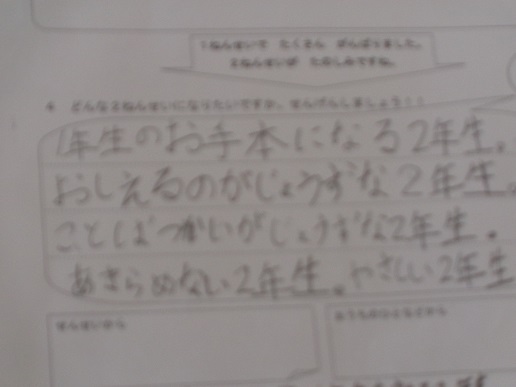 1ねんせいで たくさん がんばりました。
2ねんせいが たのしみですね。
4 どんな2ねんせいになりたいですか。せんげんしましょう！！
1年生のお手本になる2年生。
おしえるのがじょうずな2年生。
ことばづかいがじょうずな2年生。
あきらめない2年生。やさしい2年生
せんせいから
おうちのひとなどから